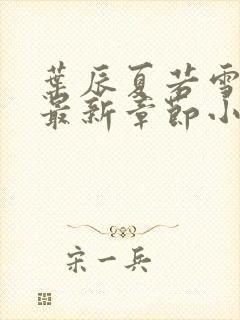 葉辰夏若雪
最新章節小
宋一兵